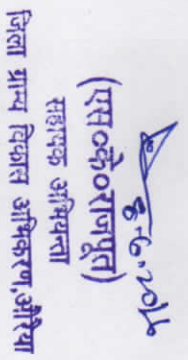 8.6.2016
(एस०के०राजपूत)
सहायक अभियन्ता
जिला ग्राम्य विकास अभिकरण,औरैया